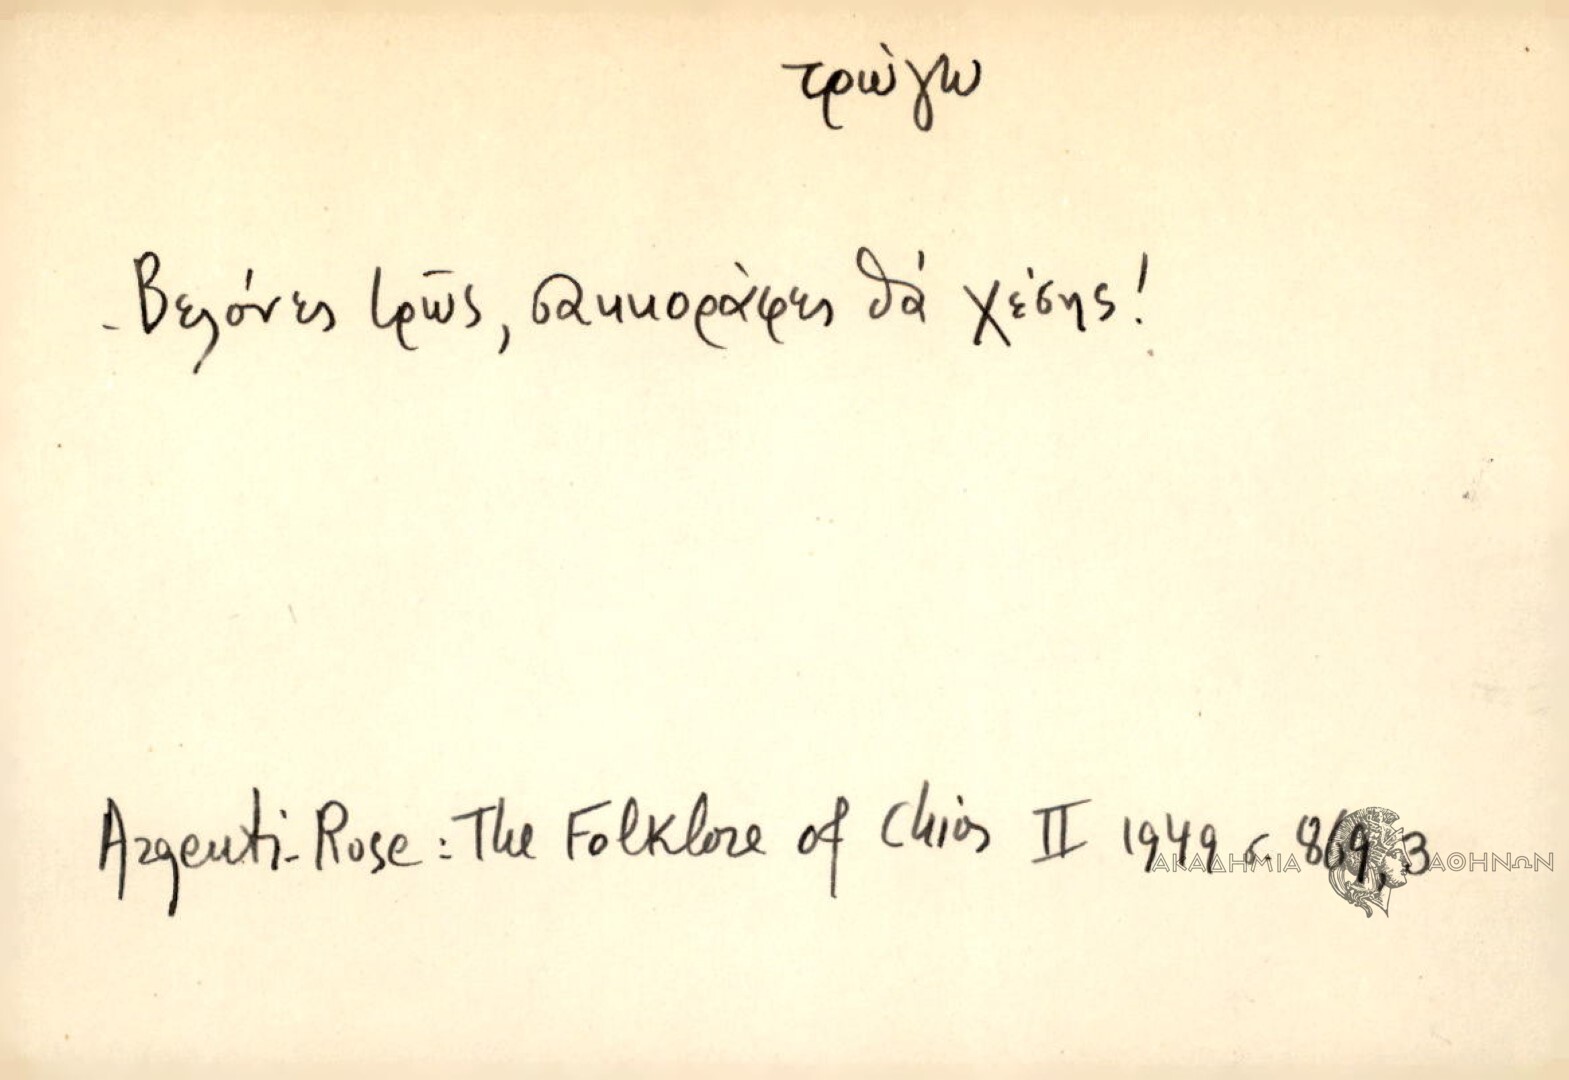 τρώγω
- Βελόνες τρῶς, σακκοράφες θά χέσης!
Argenti-Rose: The Folklore of Chios II 1949 σ. 869, 3
ΑΚΑΔΗΜΙΑ ΑΘΗΝΩΝ